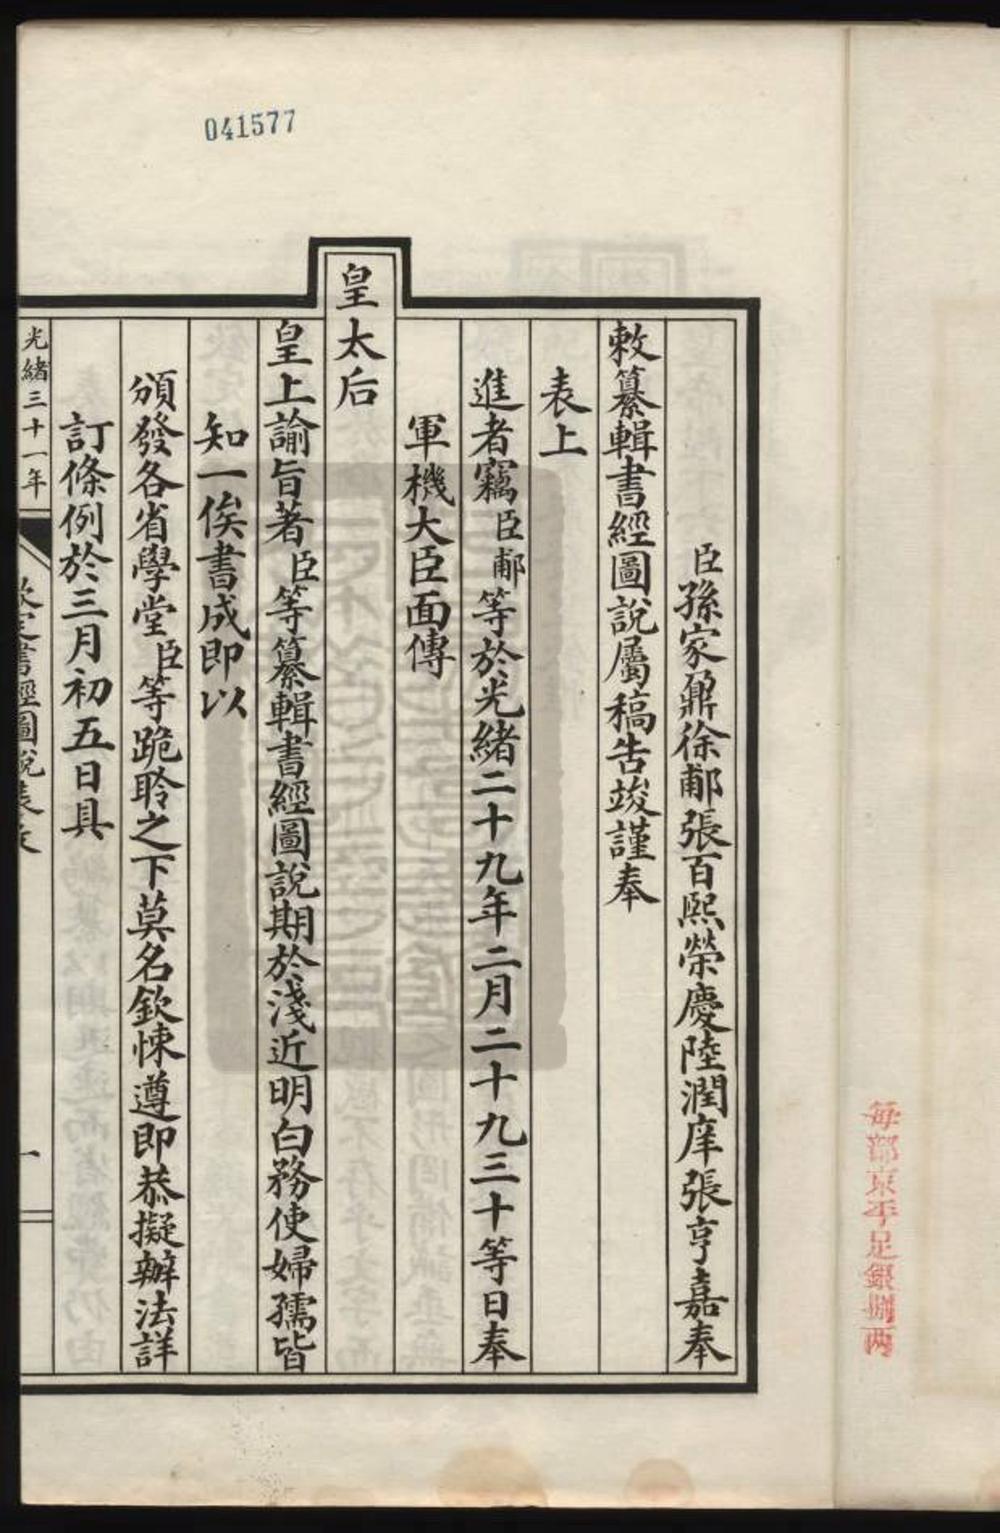 041577
每部京平足銀捌两
臣孫家鼐徐郙張百熙榮慶陸潤庠張亨嘉奉
敕纂輯書經圖說屬稿告竣謹奉
表上
進者竊臣郙等於光緒二十九年二月二十九三十等日奉
軍機大臣面傳
皇太后
皇上諭旨著臣等纂輯書經圖說期於淺近明白務使婦孺皆
知一俟書成即以
頒發各省學堂臣等跪聆之下莫名欽悚遵即恭擬辦法詳
訂條例於三月初五日具
光緒三十一年
書經圖說
一